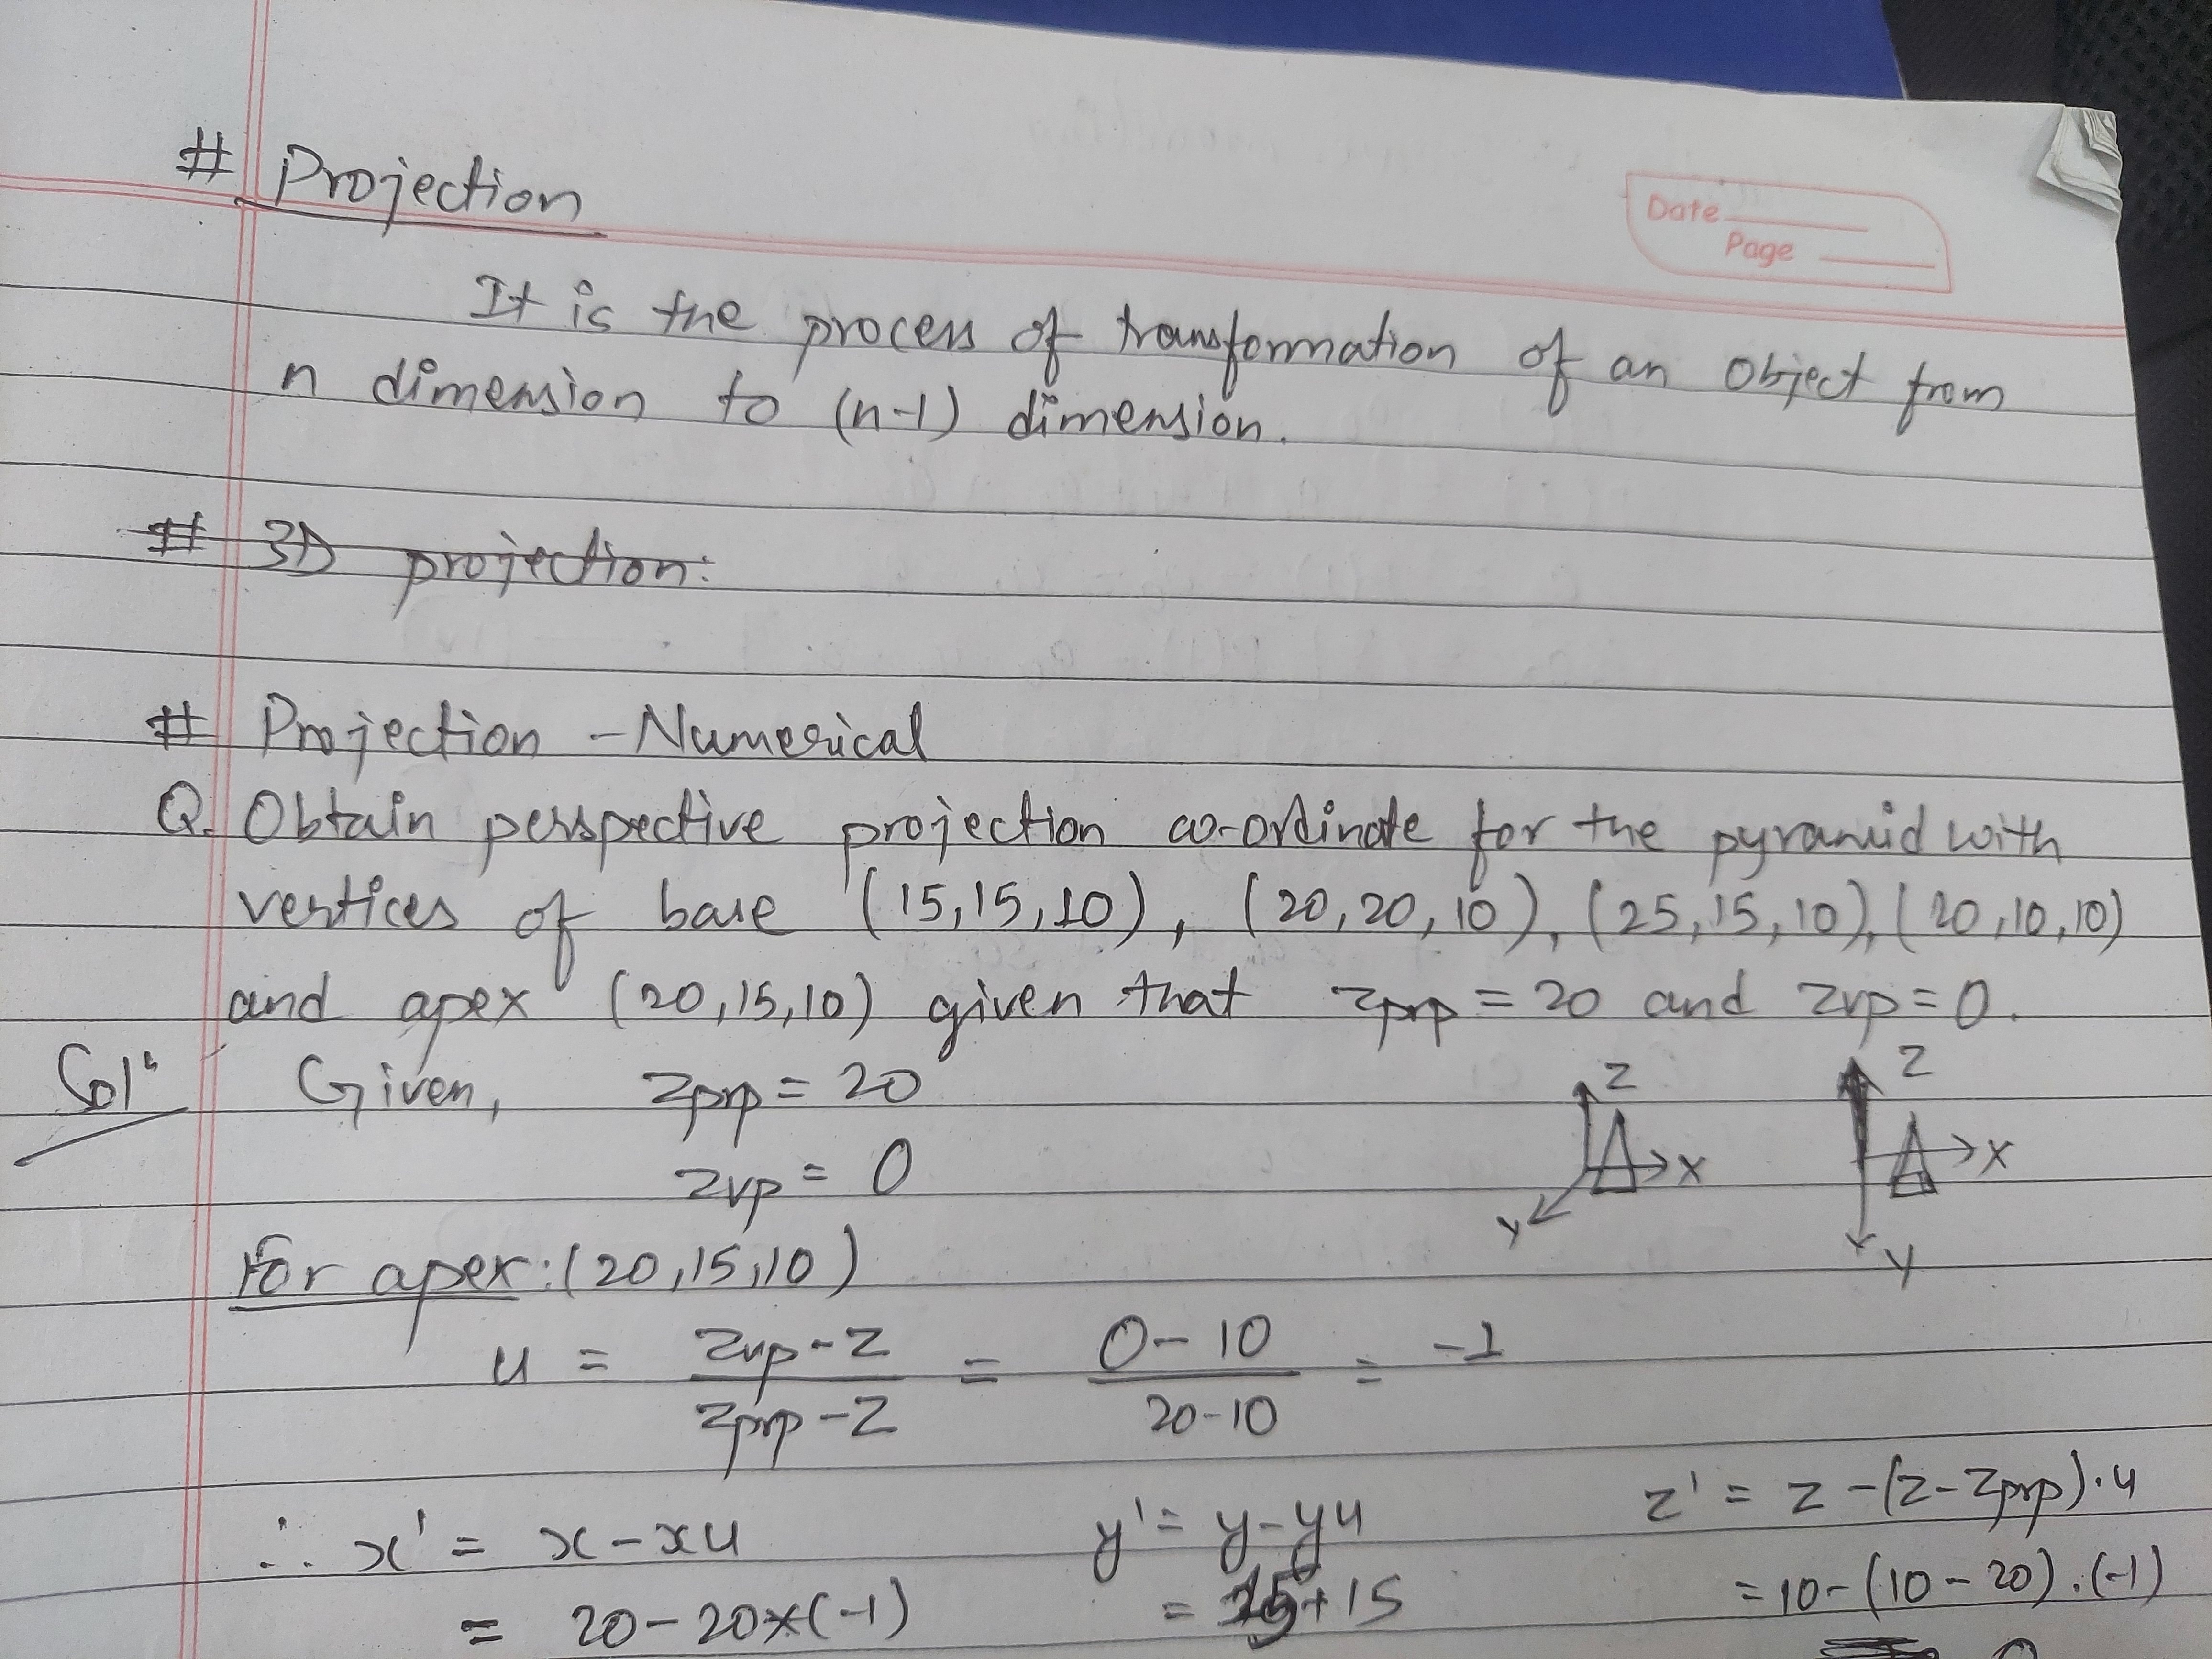 # Projection
Date
Page
It is the process of transformation of an object from
n dimension to (n-1) dimension.
# 3D projection:
# Projection - Numerical
Q. Obtain perspective projection co-ordinate for the pyramid with
vertices of base (15,15,10), (20,20,10), (25,15,10), (20,10,10)
and apex (20,15,10) given that zprp = 20 and zvp = 0.
Solⁿ Given, zprp = 20
Z
X
Y
Z
X
Y
zvp = 0
For apex: (20,15,10)
u = zvp-z / zprp-z = 0-10 / 20-10 = -1
∴ x' = x - xu y' = y-yu z' = z-(z-zprp).u
= 20-20×(-1) = 15+15 = 10-(10-20).(-1)